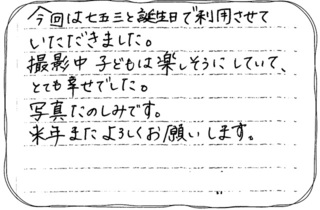 今回は七五三と誕生日で利用させて
いただきました。
撮影中 子どもは楽しそうにしていて、
とても幸せでした。
写真たのしみです。
来年またよろしくお願いします。